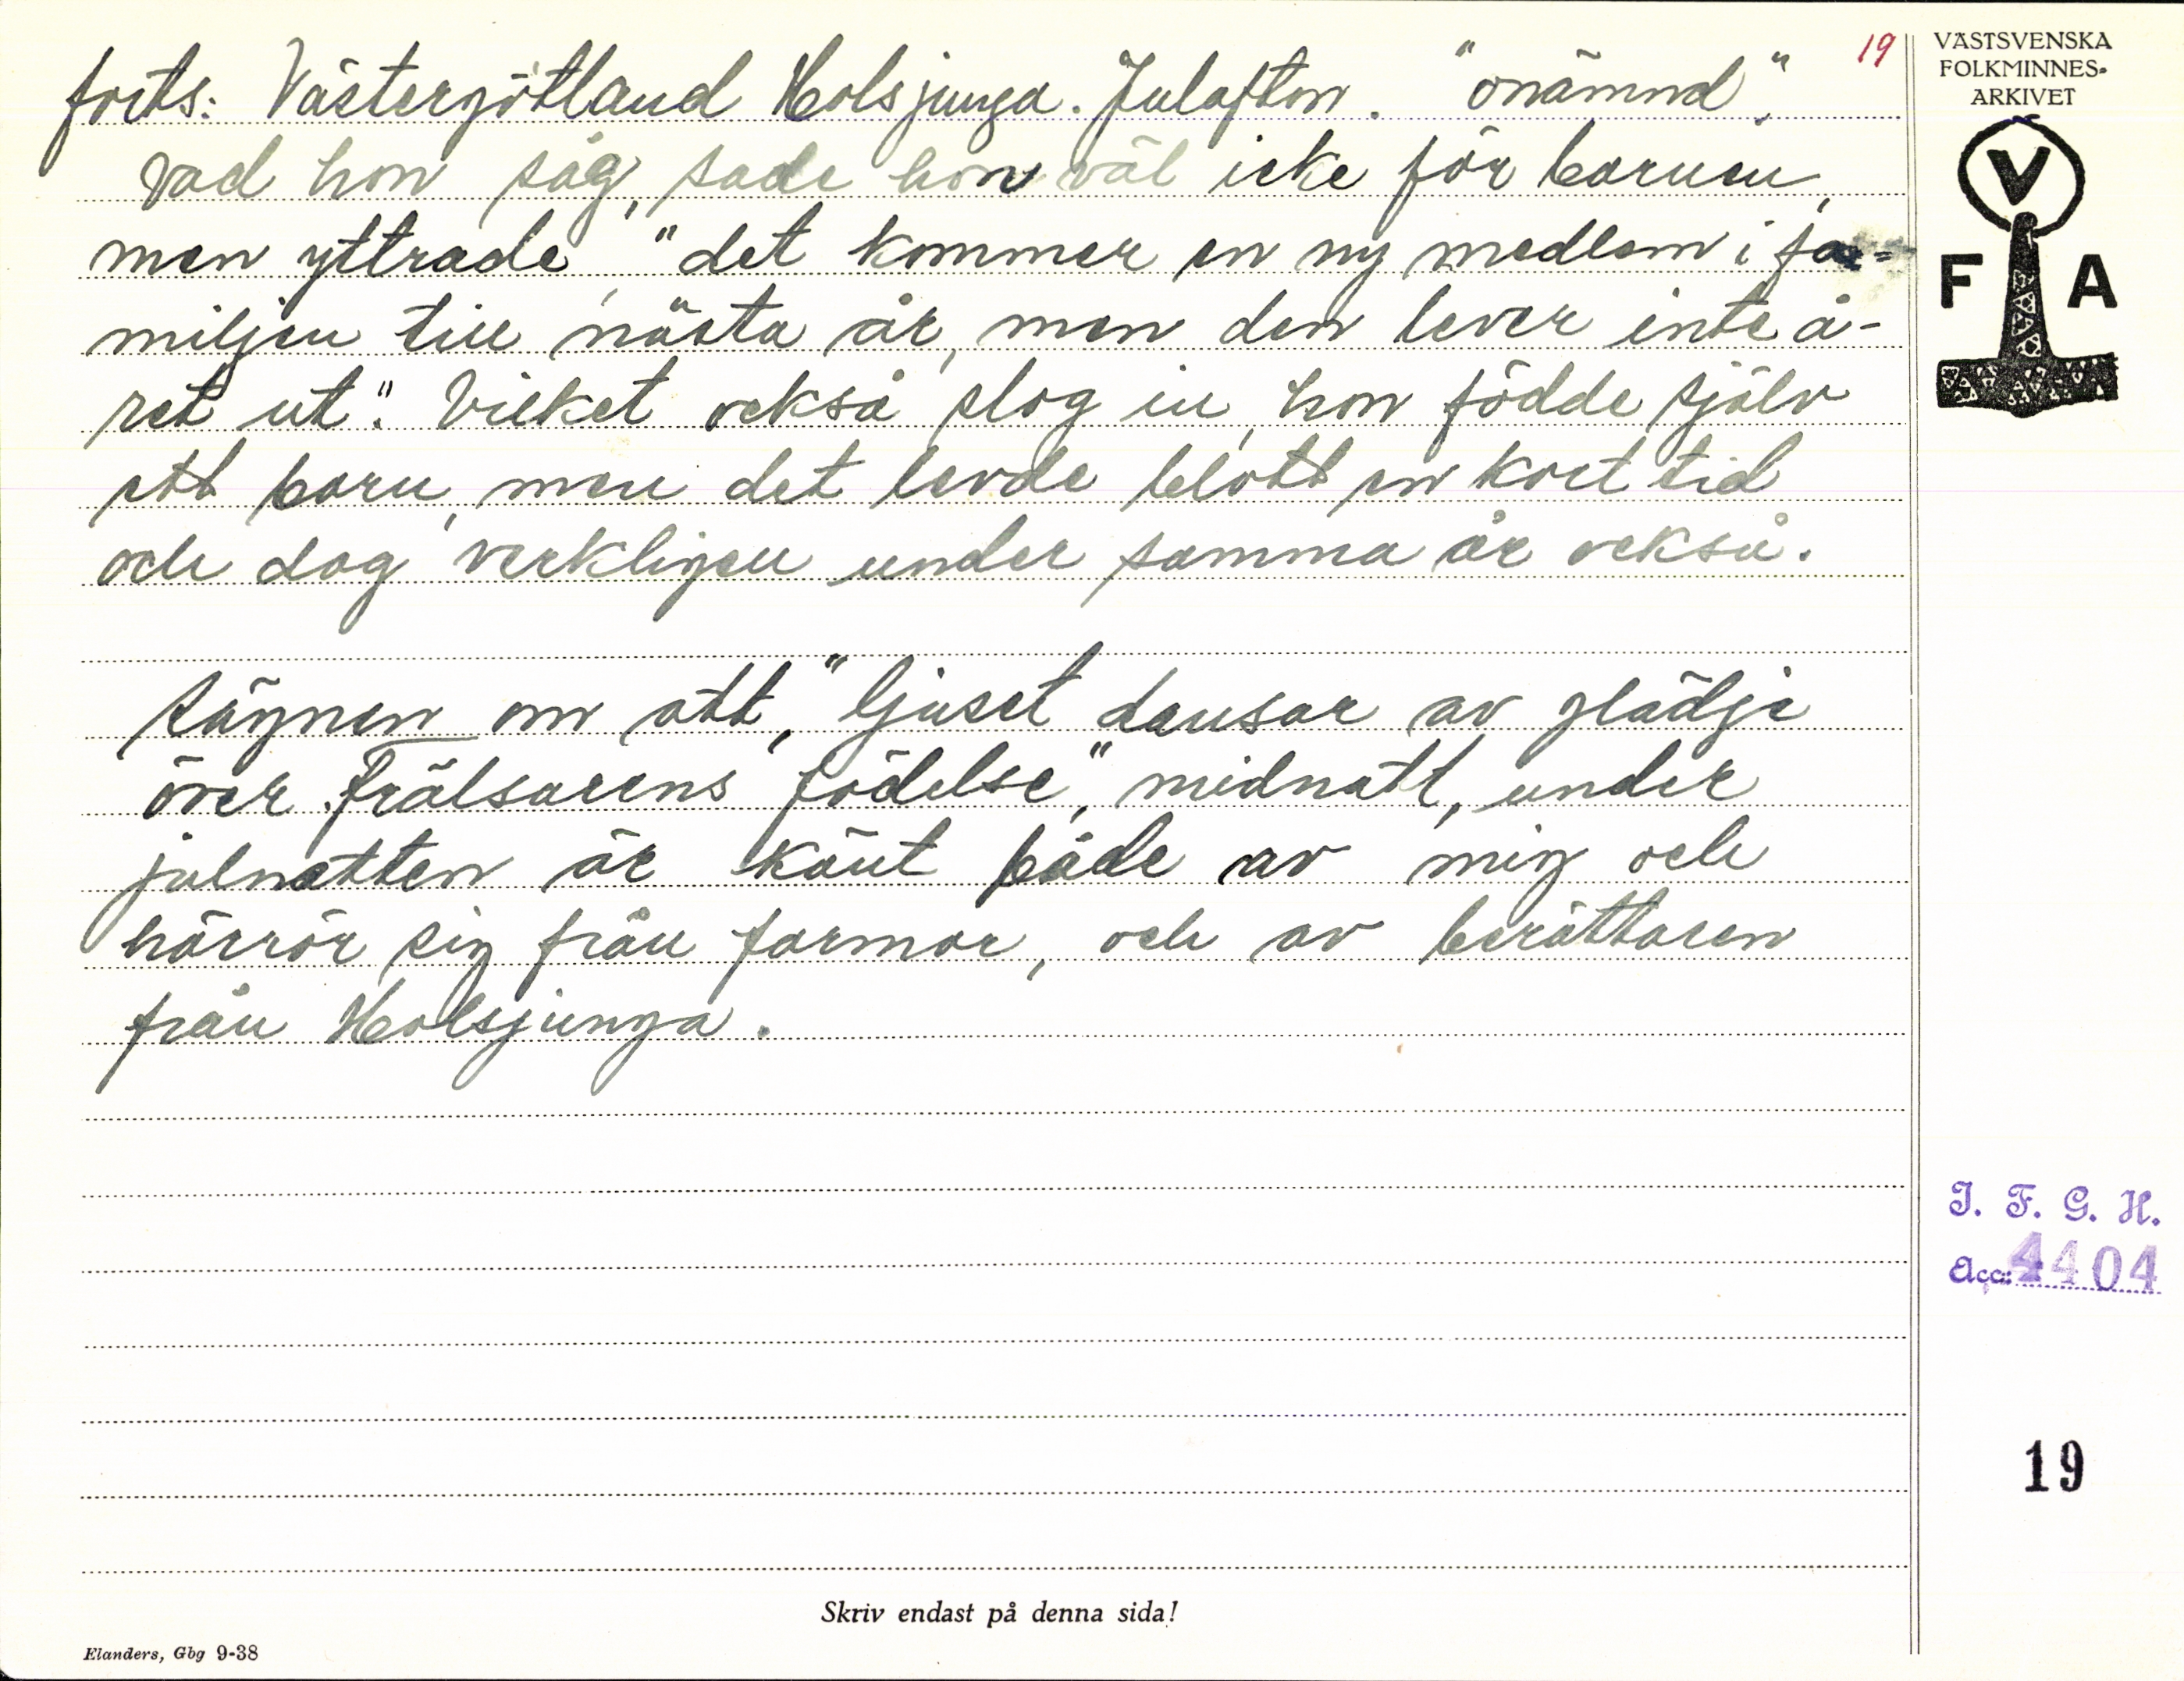 forts: Västergötland Holsjunga. Julafton. "onämnd".
19
Vad hon såg, sade hon väl icke för barnen,
men yttrade, "det kommer en ny medlem i fa-
miljen till nästa år, men den lever inte å-
ret ut". Vilket också slog in, hon födde själv
ett barn, men det levde blott en kort tid
och dog verkligen under samma år också.
Sägnen om att, "ljuset dansar av glädje
över Frälsarens födelse", midnatt, under
julnatten är känt både av mig och
härrör sig från farmor, och av berättaren
från Holsjunga.
VÄSTSVENSKA
FOLKMINNES-
ARKIVET
V
F A
I. F. G. H.
Acc: 4404
19
Skriv endast på denna sida!
Elanders, Gbg 9-38